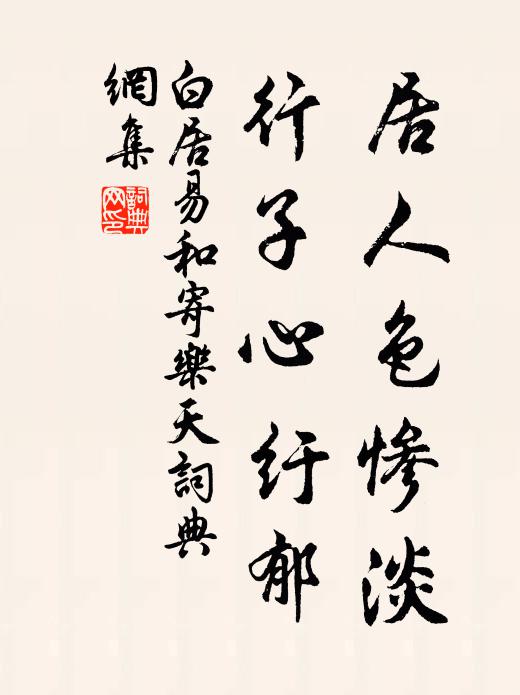 居人色慘淡
行子心紆郁
白居易和寄樂天詞典
網集
詞典
网印